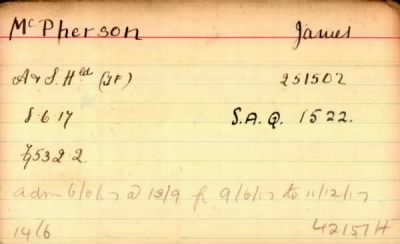 McPherson James
A & S. Hld (TF) 251507
8.6.17 S.A.Q. 1522.
75322.
adm 6/6/17 @ 13/9 fr 9/6/17 to 11/12/17
14/6 42157H